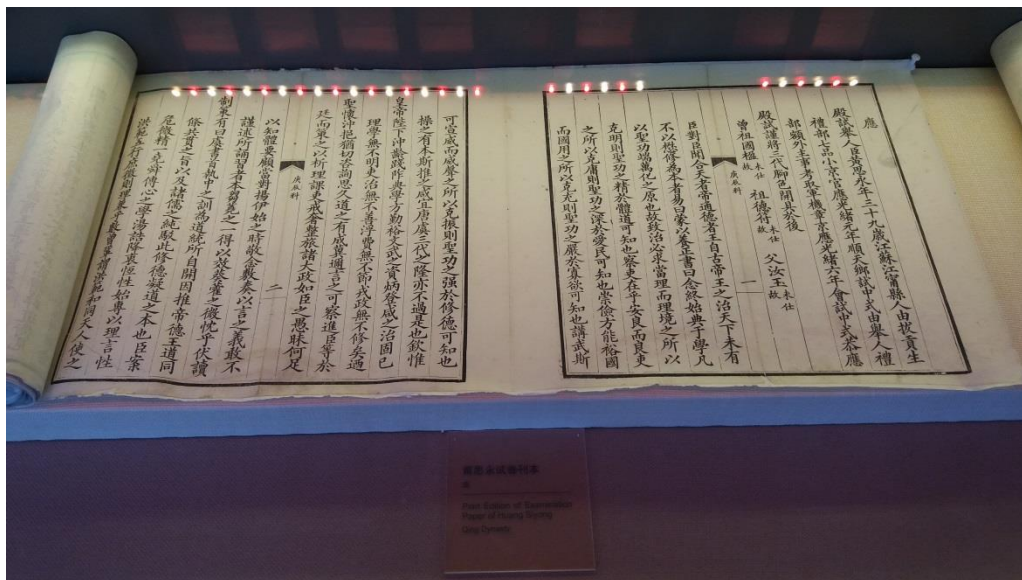 應
殿試舉人臣黃思永年三十九歲江蘇江寧縣人由拔貢生
禮部七品小京官應光緒元年順天鄉試中式由舉人禮
部額外主事考取軍機章京應光緒六年會試中式恭應
殿試謹將三代腳色開具於後
曾祖國櫺未仕故 祖德符未仕故 父汝玉未仕故
一
庚辰科
臣對臣聞合天者帝通德者王自古帝王之治天下未有
不以懋修為本者易曰蒙以養正書曰念終始典于學凡
以聖功端萬化之原也故致治必求當理而理境之所以
克明則聖功之精於體道可知也察吏在乎安良而良吏
之所以克庸則聖功之深於愛民可知也崇儉方能裕國
而國用之所以克充則聖功之嚴於寡欲可知也講武斯
可宣威而威聲之所以克振則聖功之强於修德可知也
操之有本斯推之咸宜唐虞三代之隆亦不過是也欽惟
皇帝陛下沖齡踐阼典學方勤裕文武之資炳登咸之治固已
理學無不明吏治無不善浮費無不節戎政無不修矣迺
聖懷沖挹猶切咨詢思久道之有成冀邇言之可察進臣等於
廷而策之以析理課吏戒奢整旅諸大政如臣之愚昧何足
庚辰科
二
以知體要顧當對揚伊始之時敬念敷奏以言之義敢不
謹述所誦習者本芻蕘之一得以葵藿之微忱乎伏讀
制策有曰虞書言執中之訓為道統所自開因推帝德王道同
條共貫之旨以及諸儒之純駁此修德凝道之本也臣案
危微精一堯舜傳心之學湯誥降衷恆性始專以理言性
黃思永試卷刊本
清
Print Edition of Examination
Paper of Huang Siyong
Qing Dynasty